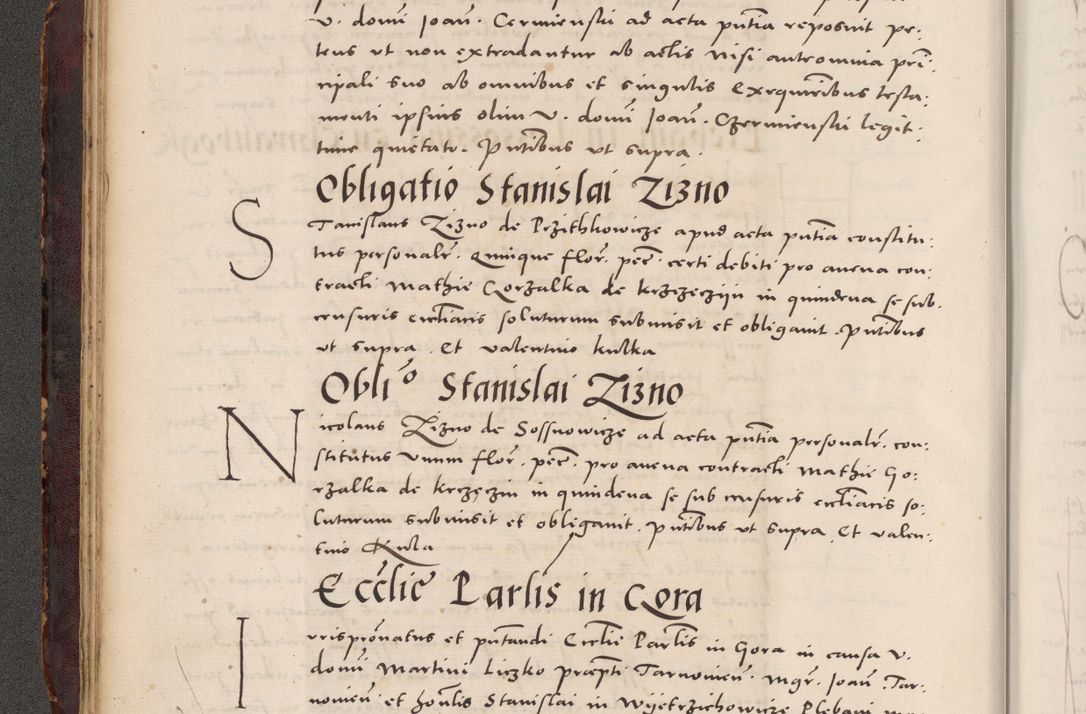 v. domi Joan. Cermienski ad acta pntia reposuit pe:
tens ut non extradantur ab actis nisi autronnia pri:
ripali suo ab omnibus et singulis Exequutibus testa:
menti ipsius olim v. domi Joan. Czermienski legit:
time quietatr. Pntibus ut supra.
Obligatio Stanislai Zizno
Stanislaus Zizno de Przithkowicze apud acta pntia constitu:
tus personalr. Quinque flor. pec. certi debiti pro avena con:
tracti Mathie Gorzalka de krzezeczijn in quindena se sub
censuris eccliaticis soluturum submisit et obligavit. Pntibus
ut supra. Et valentino kulka
Oblio Stanislai Zizno
Nicolaus Zizno de Sossnowicze ad acta pntia personalr. con:
stitutus vnum flor. pec. pro avena contracti Mathie Go:
rzalka de krzeczin in quindena se sub censuris eccliaris so:
luturum submisit et obligavit. Pntibus ut supra. Et valen:
tino Kula
Ecclie Parlis in Gora
Jurispronatus et pntandi Ecclie Parlis in Gora in causa v.
domi Martini Liczko praepti Tarnovien. Mgr. Joan. Tar:
novien et honlis Stanislai in Wijetrzichowicze Plebani